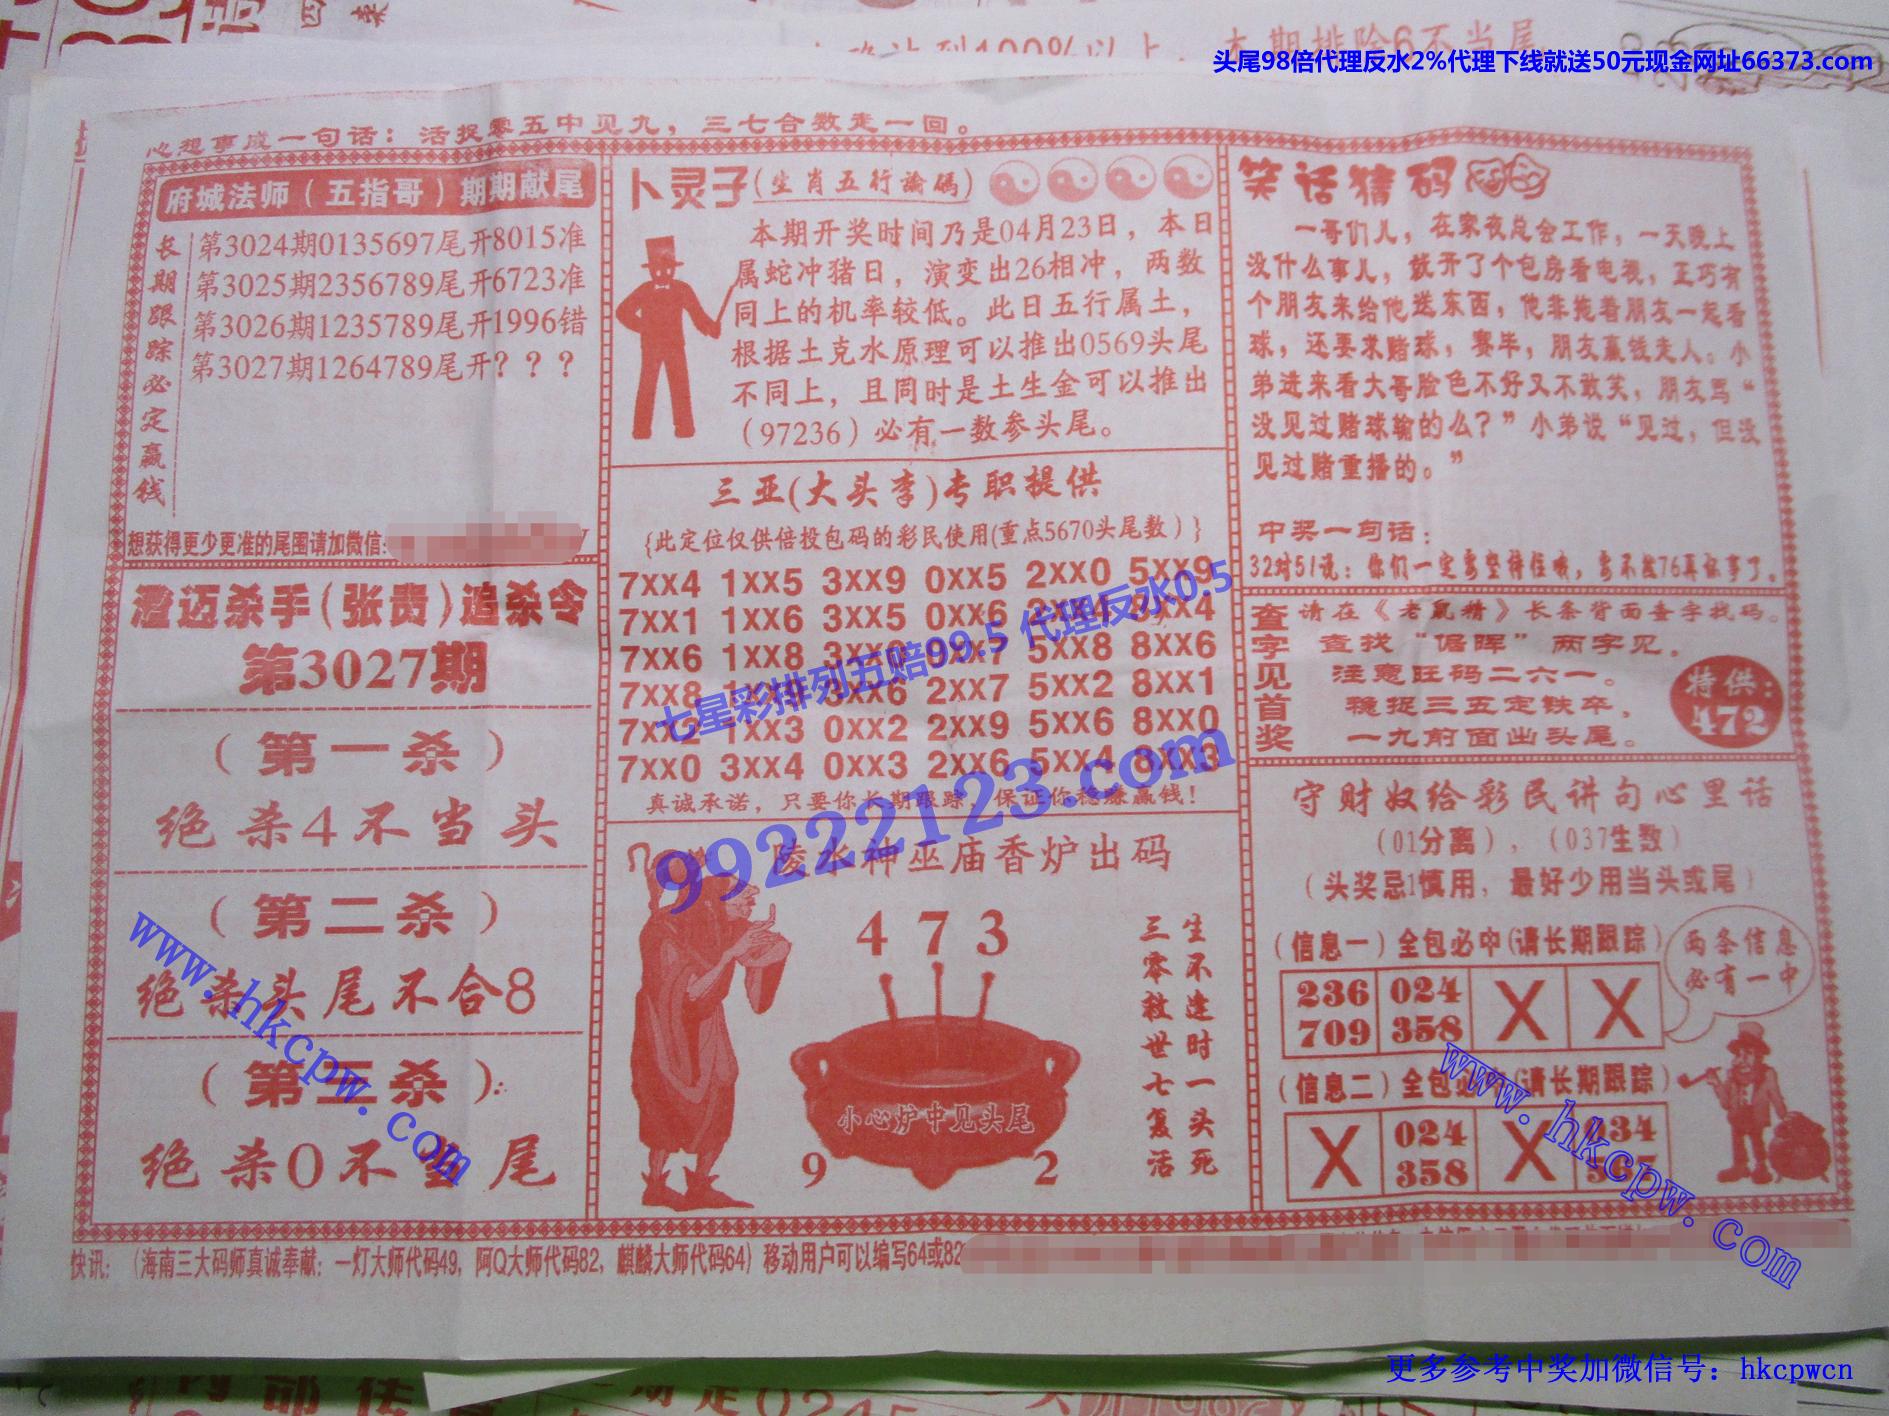 头尾98倍代理反水2%代理下线就送50元现金网址66373.com
心想事成一句话：活捉零五中见九，三七合数走一回。
府城法师（五指哥）期期献尾
长期跟踪必定赢钱
第3024期0135697尾开8015准
第3025期2356789尾开6723准
第3026期1235789尾开1996错
第3027期1264789尾开？？？
想获得更少更准的尾围请加微信:
澄迈杀手(张贵)追杀令
第3027期
（第一杀）
绝杀4不当头
（第二杀）
绝杀头尾不合8
（第三杀）
绝杀0不当尾
卜灵子(生肖五行論碼)
本期开奖时间乃是04月23日，本日
属蛇冲猪日，演变出26相冲，两数
同上的机率较低。此日五行属土，
根据土克水原理可以推出0569头尾
不同上，且同时是土生金可以推出
（97236）必有一数参头尾。
三亚(大头李)专职提供
{此定位仅供倍投包码的彩民使用(重点5670头尾数）}
7xx4 1xx5 3xx9 0xx5 2xx0 5xx9
7xx1 1xx6 3xx5 0xx6 2xx4 8xx4
7xx6 1xx8 3xx0 0xx7 5xx8 8xx6
7xx8 1xx9 3xx6 2xx7 5xx2 8xx1
7xx2 1xx3 0xx2 2xx9 5xx6 8xx0
7xx0 3xx4 0xx3 2xx6 5xx4 8xx3
真诚承诺，只要你长期跟踪，保证你稳赚赢钱！
七星彩排列五赔99.5 代理反水0.5
99222123.com
陵水神巫庙香炉出码
473
生不逢时一头死
三零救世七复活
小心炉中见头尾
9 2
笑话猜码
一哥们儿，在家夜总会工作，一天晚上
没什么事儿，就开了个包房看电视，正巧有
个朋友来给他送东西，他非拖着朋友一起看
球，还要求赌球，赛毕，朋友赢钱走人。小
弟进来看大哥脸色不好又不敢笑，朋友骂“
没见过赌球输的么？”小弟说“见过，但没
见过赌重播的。”
中奖一句话：
32对51说：你们一定要坚持住哦，要不然76再说事了。
查字见首奖
请在《老鼠精》长条背面查字找码。
查找“倨晖”两字见。
注意旺码二六一。
稳捉三五定铁卒，
一九前面出头尾。
特供：
472
守财奴给彩民讲句心里话
（01分离），（037生数）
（头奖忌1慎用，最好少用当头或尾）
（信息一）全包必中(请长期跟踪)
236 024 X X
709 358
两条信息
必有一中
（信息二）全包必中(请长期跟踪)
X 024 X 134
358 567
www.hkcpw.com
www.hkcpw.com
快讯：（海南三大码师真诚奉献：一灯大师代码49，阿Q大师代码82，麒麟大师代码64）移动用户可以编写64或82
更多参考中奖加微信号：hkcpwcn